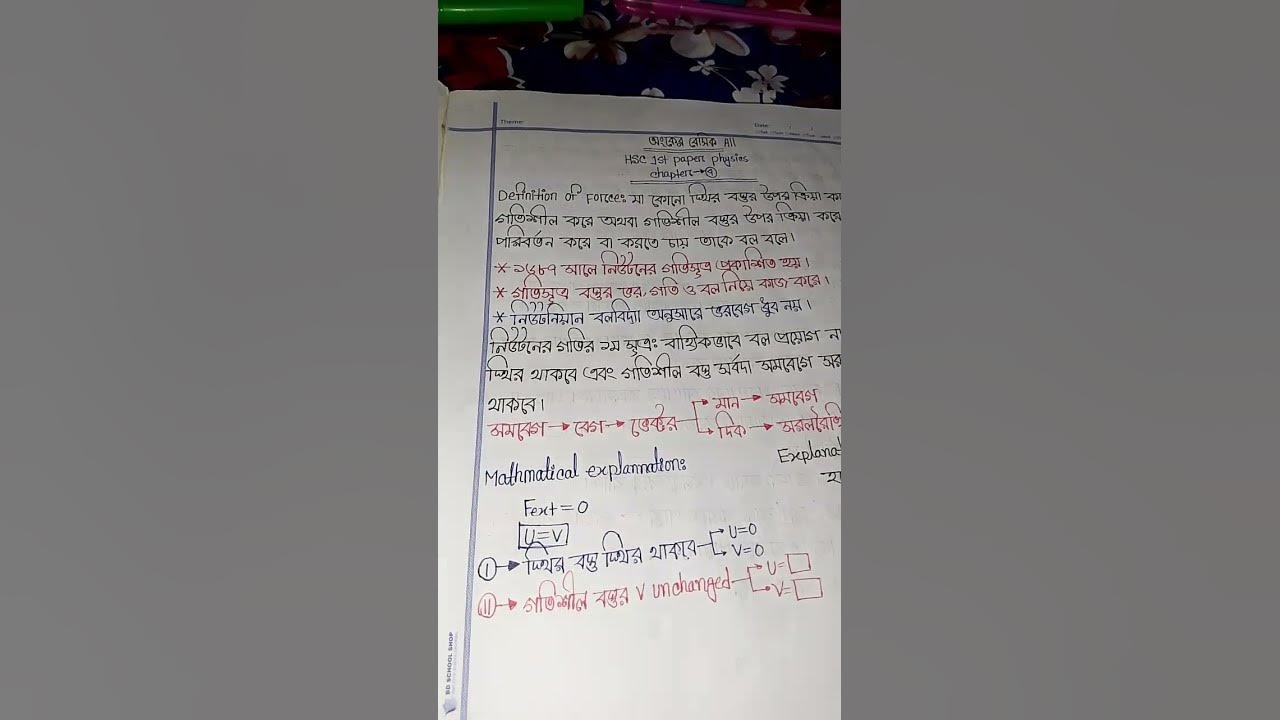 Theme:
Date:
অংকের বেসিক All
HSC 1st paper physics
chapter→④
Definition of Force: যা কোনো স্থির বস্তুর উপর ক্রিয়া
গতিশীল করে অথবা গতিশীল বস্তুর উপর ক্রিয়া করে
পরিবর্তন করে বা করতে চায় তাকে বল বলে।
* ১৬৮৭ সালে নিউটনের গতিসূত্র প্রকাশিত হয়।
* গতিসূত্র বস্তুর ভর, গতি ও বল নিয়ে কাজ করে।
* নিউটনিয়ান বলবিদ্যা অনুসারে ভরবেগ ধ্রুব নয়।
নিউটনের গতির ১ম সূত্রঃ বাহ্যিকভাবে বল প্রয়োগ না
স্থির থাকবে এবং গতিশীল বস্তু সর্বদা সমবেগে
থাকবে।
সমবেগ → বেগ → ভেক্টর → মান → সমবেগ
→ দিক →
Mathmatical explannation:
Fext = 0
U=V
I → স্থির বস্তু স্থির থাকবে → U=0
→ V=0
II → গতিশীল বস্তুর V unchanged → U=□
→ V=□
BD SCHOOL SHOP